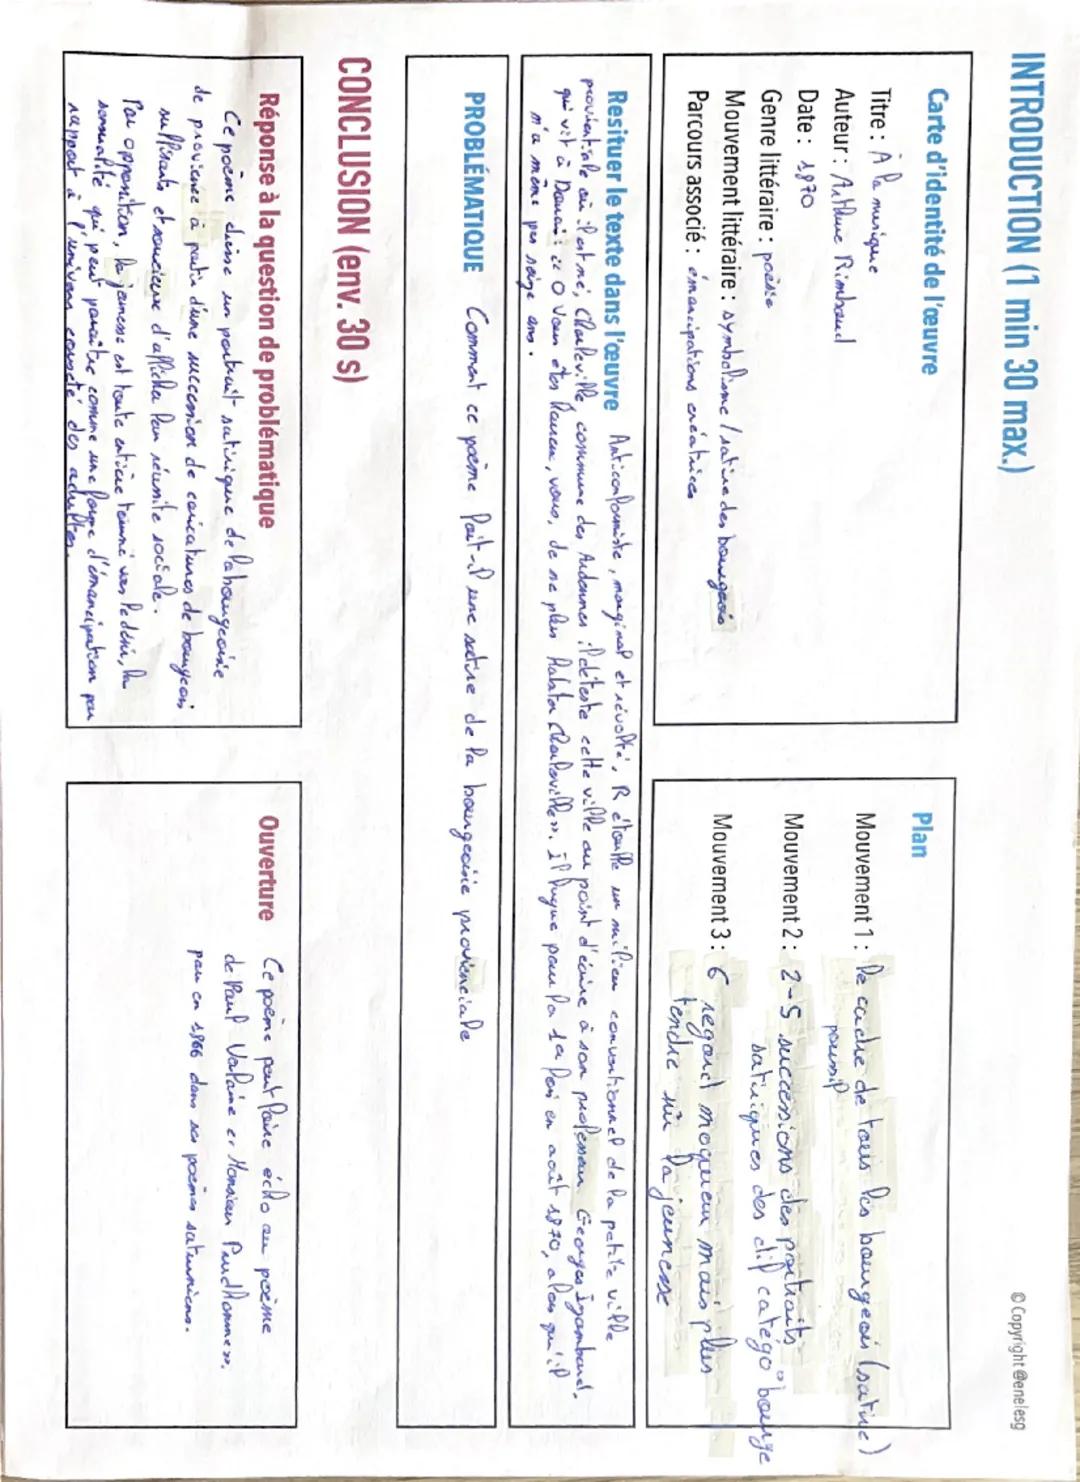 © Copyright @enelesg
INTRODUCTION (1 min 30 max.)
Carte d'identité de l'œuvre
Titre : À la musique
Auteur : Arthur Rimbaud
Date : 1870
Genre littéraire : poésie
Mouvement littéraire : symbolisme / satire des bourgeois
Parcours associé : émancipations créatrices
Plan
Mouvement 1 : le cadre de tous les bourgeois (satire)
poussif
Mouvement 2 : 2-5 successions des portraits
satiriques des dif catégo° bourge
Mouvement 3 : 6 regard moqueur mais plus
tendre sur la jeunesse
Resituer le texte dans l'œuvre Anticonformiste, marginal et révolté, R étouffe un milieu conventionnel de la petite ville
provinciale où il est né, Charleville, commune des Ardennes il déteste cette ville au point d'écrire à son professeur Georges Izambard,
qui vit à Douai : « O vous êtes heureux, vous, de ne plus habiter Charleville ». Il fugue pour la 1a fois en août 1870, alors qu'il
n'a même pas seize ans.
PROBLÉMATIQUE Comment ce poème fait-il une satire de la bourgeoisie provinciale
CONCLUSION (env. 30 s)
Réponse à la question de problématique
Ce poème dresse un portrait satirique de la bourgeoisie
de province à partir d'une succession de caricatures de bourgeois,
suffisants et soucieux d'afficher leur réussite sociale.
Par opposition, la jeunesse est toute entière tournée vers le désir, la
sensualité qui peut paraître comme une forme d'émancipation par
rapport à l'univers corseté des adultes.
Ouverture Ce poème peut faire écho au poème
de Paul Valaine « Monsieur Prudhomme »,
paru en 1866 dans ses poèmes saturniens.